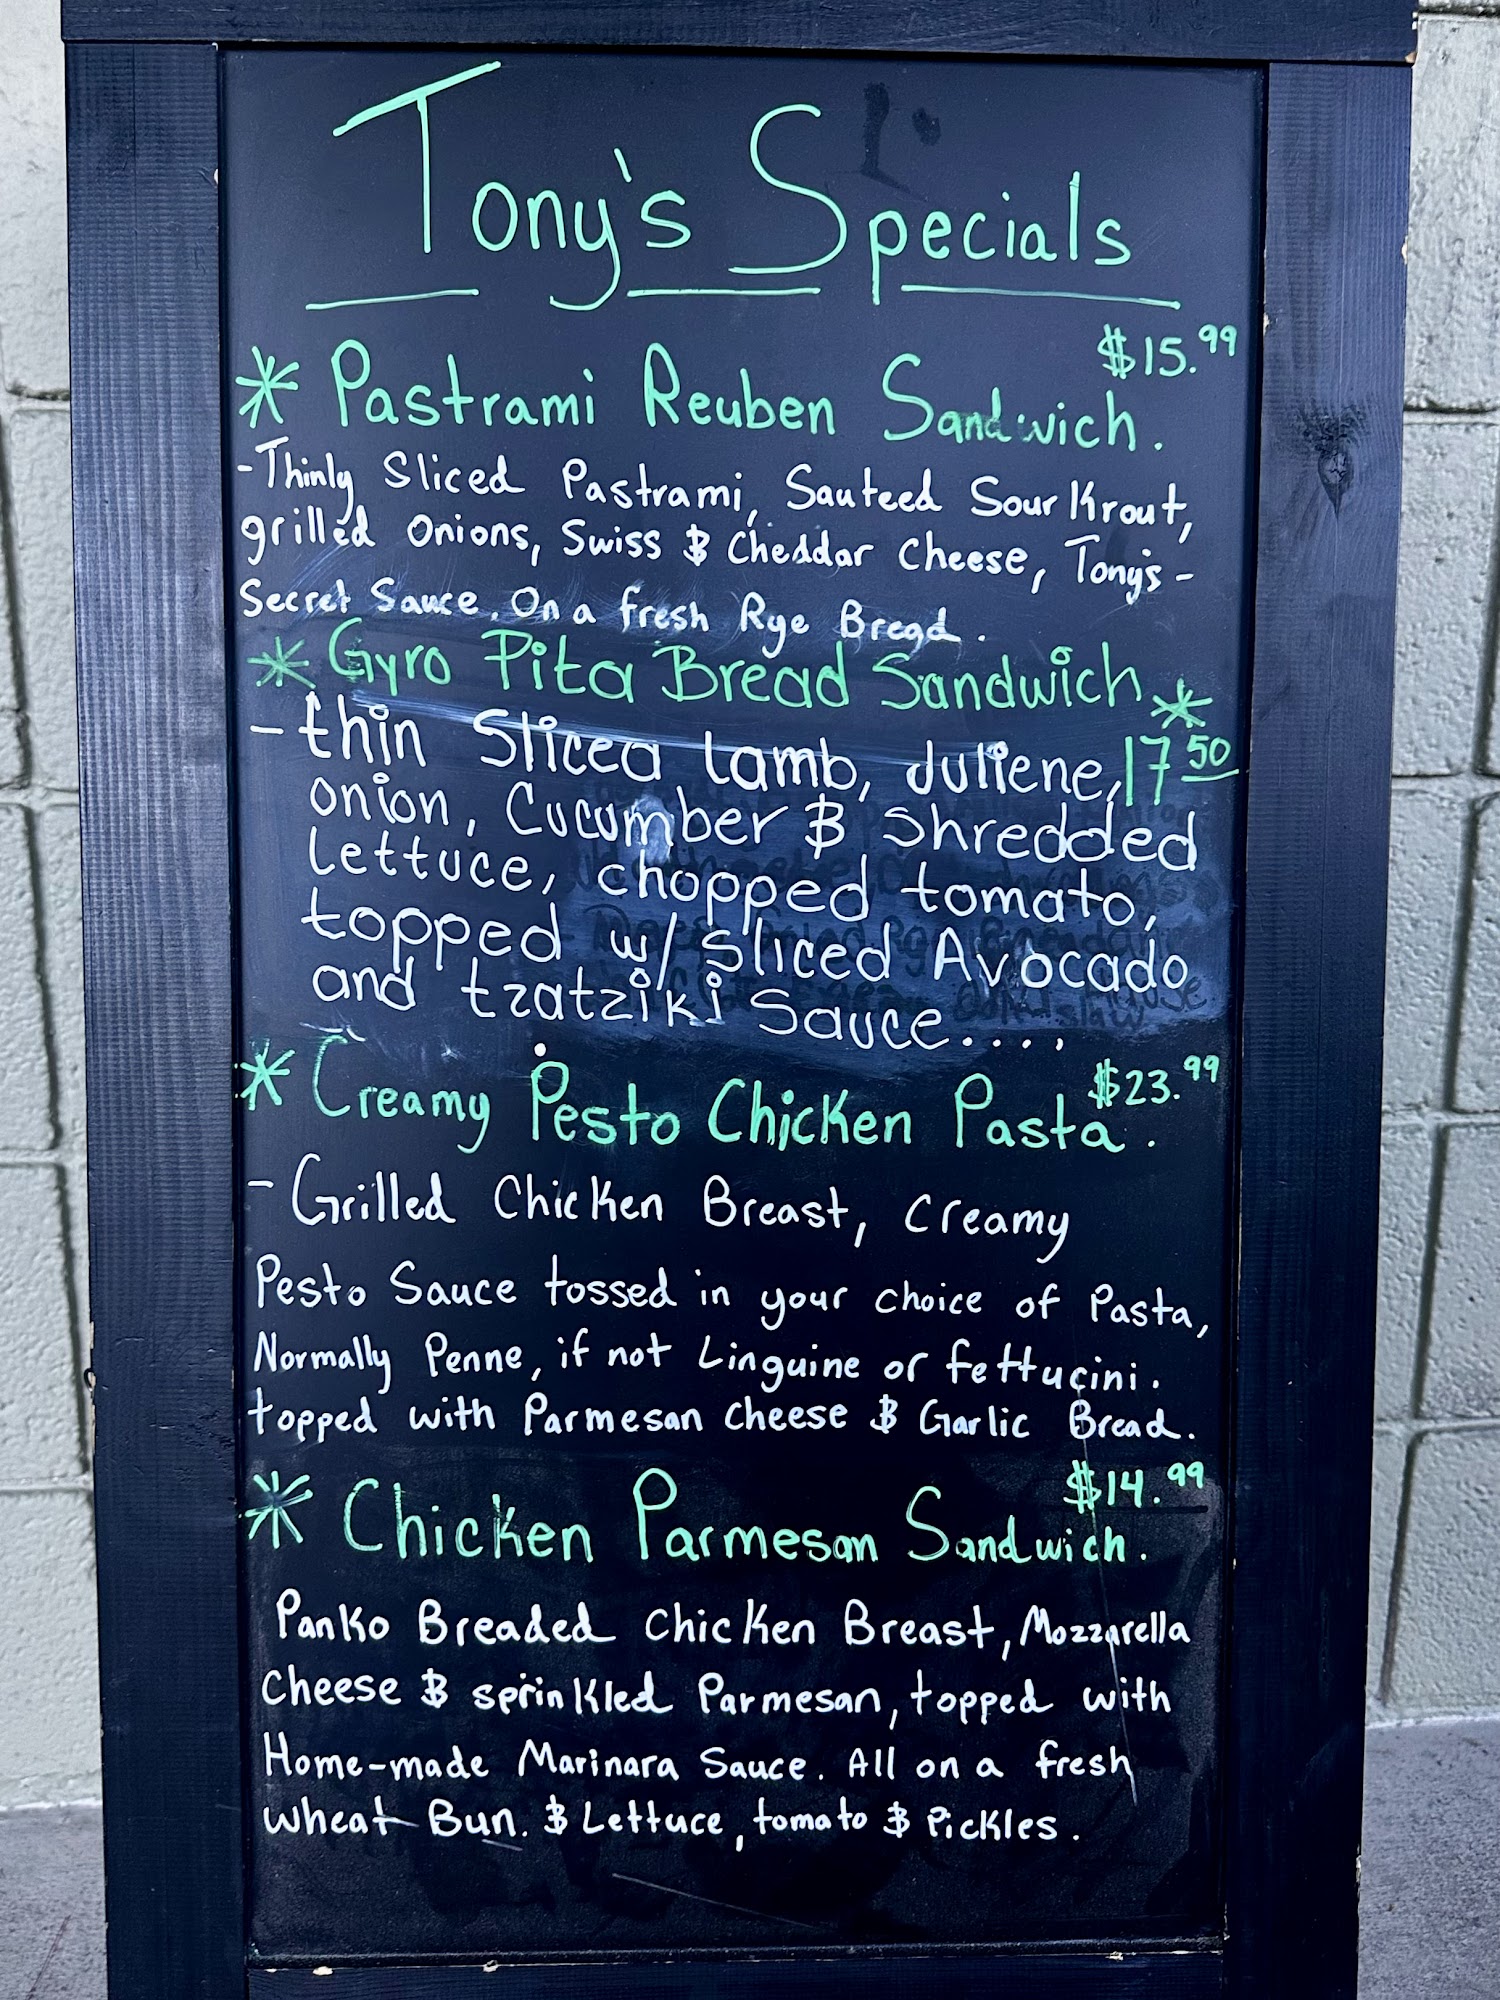 Tony's Specials
$15.99
* Pastrami Reuben Sandwich.
-Thinly Sliced Pastrami, Sauteed Sour Krout,
grilled Onions, Swiss & Cheddar Cheese, Tony's-
Secret Sauce. On a fresh Rye Bread.
* Gyro Pita Bread Sandwich *
- thin Sliced lamb, Juliene, 17 50
onion, Cucumber & Shredded
Lettuce, chopped tomato,
topped w/ Sliced Avocado
and tzatziki Sauce....,
* Creamy Pesto Chicken Pasta. $23.99
- Grilled Chicken Breast, Creamy
Pesto Sauce tossed in your choice of Pasta,
Normally Penne, if not Linguine or fettucini.
topped with Parmesan cheese & Garlic Bread.
$14.99
* Chicken Parmesan Sandwich.
Panko Breaded Chicken Breast, Mozzarella
Cheese & sprinkled Parmesan, topped with
Home-made Marinara Sauce. All on a fresh
Wheat Bun. & Lettuce, tomato & Pickles.